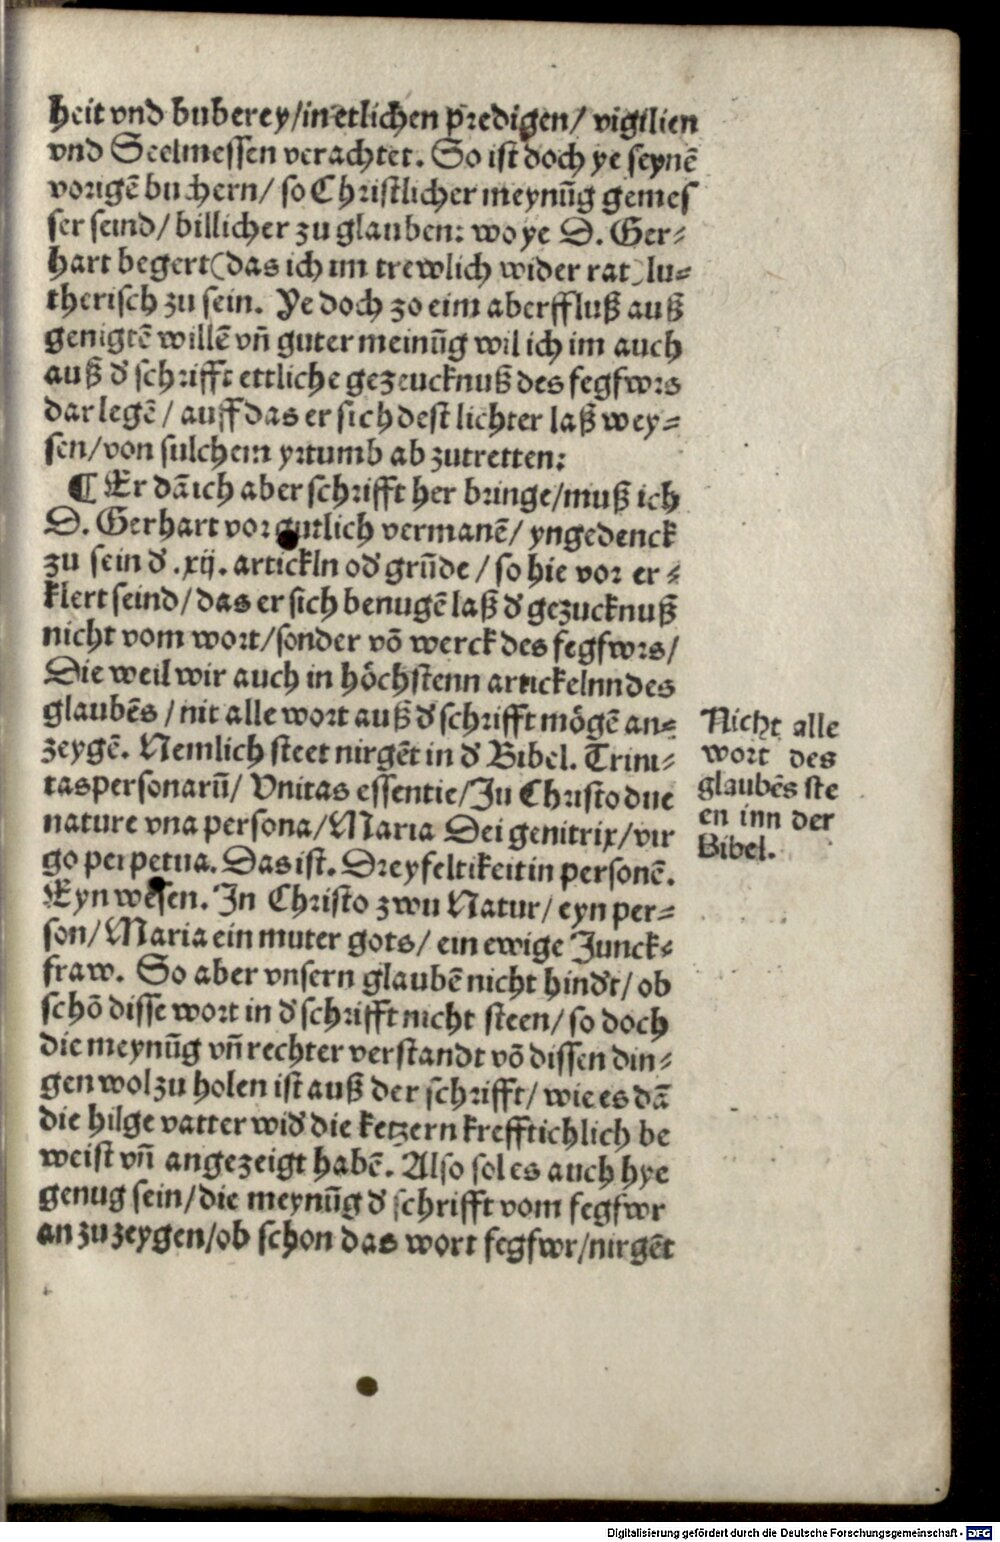 heit vnd buberey/in etlichen predigen/ vigilien
vnd Seelmessen verachtet. So ist doch ye seynē
vorigē buchern/ so Christlicher meynūg gemes
ser seind/ billicher zu glauben: wo ye D. Ger⸗
hart begert (das ich im trewlich wider rat) lu⸗
therisch zu sein. Ye doch zo eim aberffluß auß
genigtē willē vñ guter meinūg wil ich im auch
auß d' schrifft ettliche gezeucknuß des fegfwrs
dar legē / auff das er sich dest lichter laß wey⸗
sen/von sulchem yrtumb ab zutretten:
¶ Er dā ich aber schrifft her bringe/muß ich
D. Gerhart vor gutlich vermanē/ yngedenck
zu sein d' .xij. artickln od' grūde / so hie vor er⸗
klert seind/ das er sich benugē laß d' gezucknuß
nicht vom wort/sonder vō werck des fegfwrs/
Die weil wir auch in höchstenn artickelnn des
glaubēs / nit alle wort auß d' schrifft mögē an⸗
zeygē. Nemlich steet nirgēt in d' Bibel. Trini⸗
tas personarū/ Vnitas essentie/In Christo due
nature vna persona/Maria Dei genitrix/vir
go perpetua. Das ist. Dreyfeltikeit in personē.
Eyn wesen. In Christo zwu Natur/ eyn per⸗
son/ Maria ein muter gots/ ein ewige Junck⸗
fraw. So aber vnsern glaubē nicht hind't/ ob
schō disse wort in d' schrifft nicht steen/ so doch
die meynūg vñ rechter verstandt vō dissen din⸗
gen wol zu holen ist auß der schrifft/ wie es dā
die hilge vatter wid' die ketzern krefftichlich be
weist vñ angezeigt habē. Also sol es auch hye
genug sein/die meynūg d' schrifft vom fegfwr
an zu zeygen/ob schon das wort fegfwr/nirgēt
Nicht alle
wort des
glaubēs ste
en inn der
Bibel.
Digitalisierung gefördert durch die Deutsche Forschungsgemeinschaft - DFG